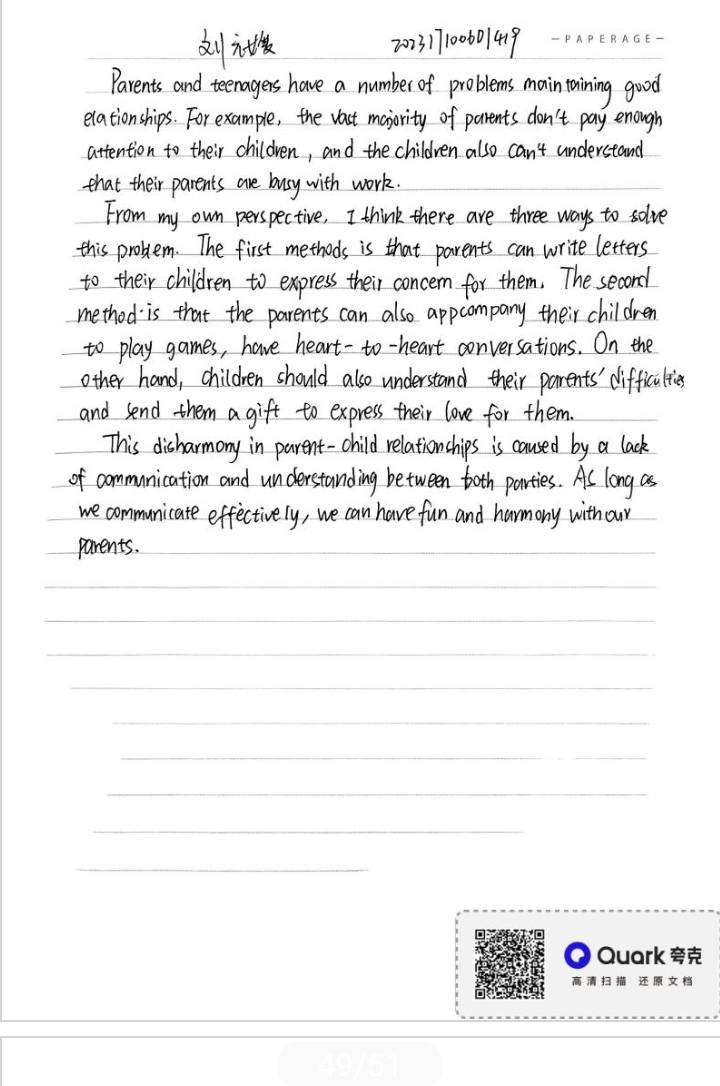 刘
202317100601419
—PAPERAGE—
Parents and teenagers have a number of problems maintaining good
elationships. For example, the vast majority of parents don't pay enough
attention to their children, and the children also can't understand
that their parents are busy with work.
From my own perspective, I think there are three ways to solve
this problem. The first methods is that parents can write letters
to their children to express their concern for them. The second
method is that the parents can also appcompany their children
to play games, have heart-to-heart conversations. On the
other hand, children should also understand their parents' difficulties
and send them a gift to express their love for them.
This disharmony in parent-child relationships is caused by a lack
of communication and understanding between both parties. As long as
we communicate effectively, we can have fun and harmony with our
parents.
Quark夸克
高清扫描 还原文档
49/51